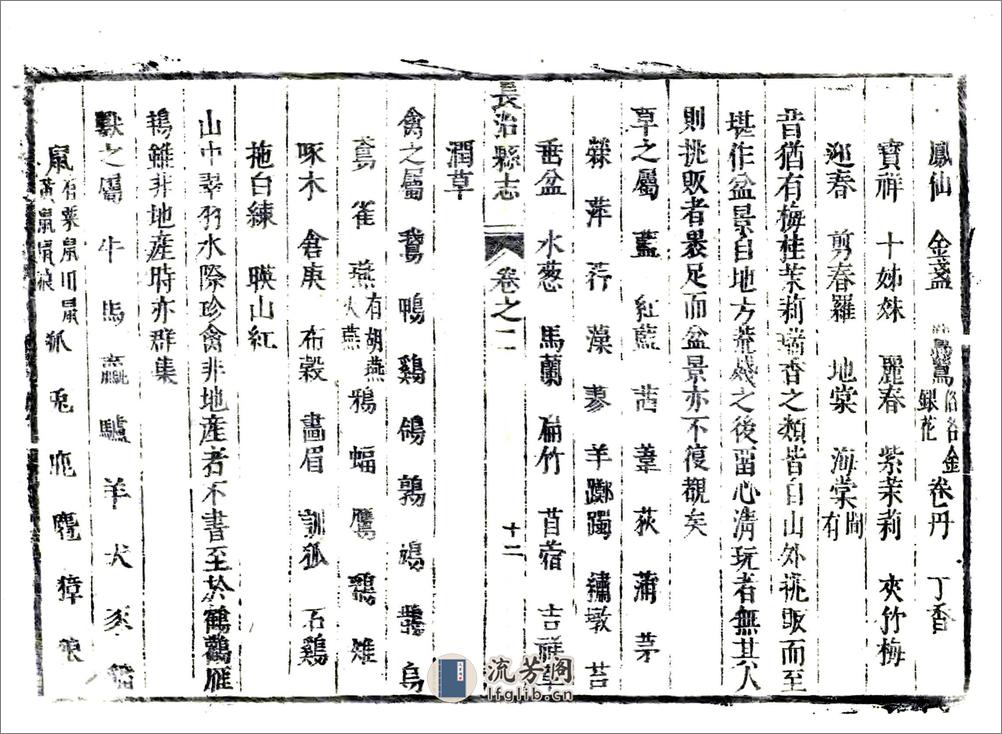 鳳仙 金盞 鴛鴦 俗名金銀花 卷丹 丁香
寶祥 十姊妹 麗春 紫茉莉 夾竹梅
迎春 剪春羅 地棠 海棠 間有
昔猶有梅桂茉莉瑞香之類皆自山外挑販而至
堪作盆景自地方荒殘之後留心清玩者無其人
則挑販者裹足而盆景亦不復觀矣
草之屬 藍 紅藍 茜 葦 荻 蒲 茅
蘋 萍 荇 藻 蓼 羊躑躅 繡墩 苔
垂盆 水葱 馬蘭 扁竹 苜蓿 吉祥草
長治縣志 卷之二 十二
潤草
禽之屬 鵞 鴨 鷄 鴿 鶉 鳩 鵲 烏
雀 燕 有胡燕 火燕 鴉 蝠 鷹 鷂 雉
啄木 倉庚 布穀 畫眉 訓狐 石鷄
拖白練 暎山紅
山中翠羽水際珍禽非地産者不書至於鶴鸛雁
鶉雖非地産時亦群集
獸之屬 牛 馬 驘 驢 羊 犬 豕 猫
鼠 有栗鼠田鼠黃鼠 狐 兎 麅 麂 獐 狼
流芳阁
lfglib.cn